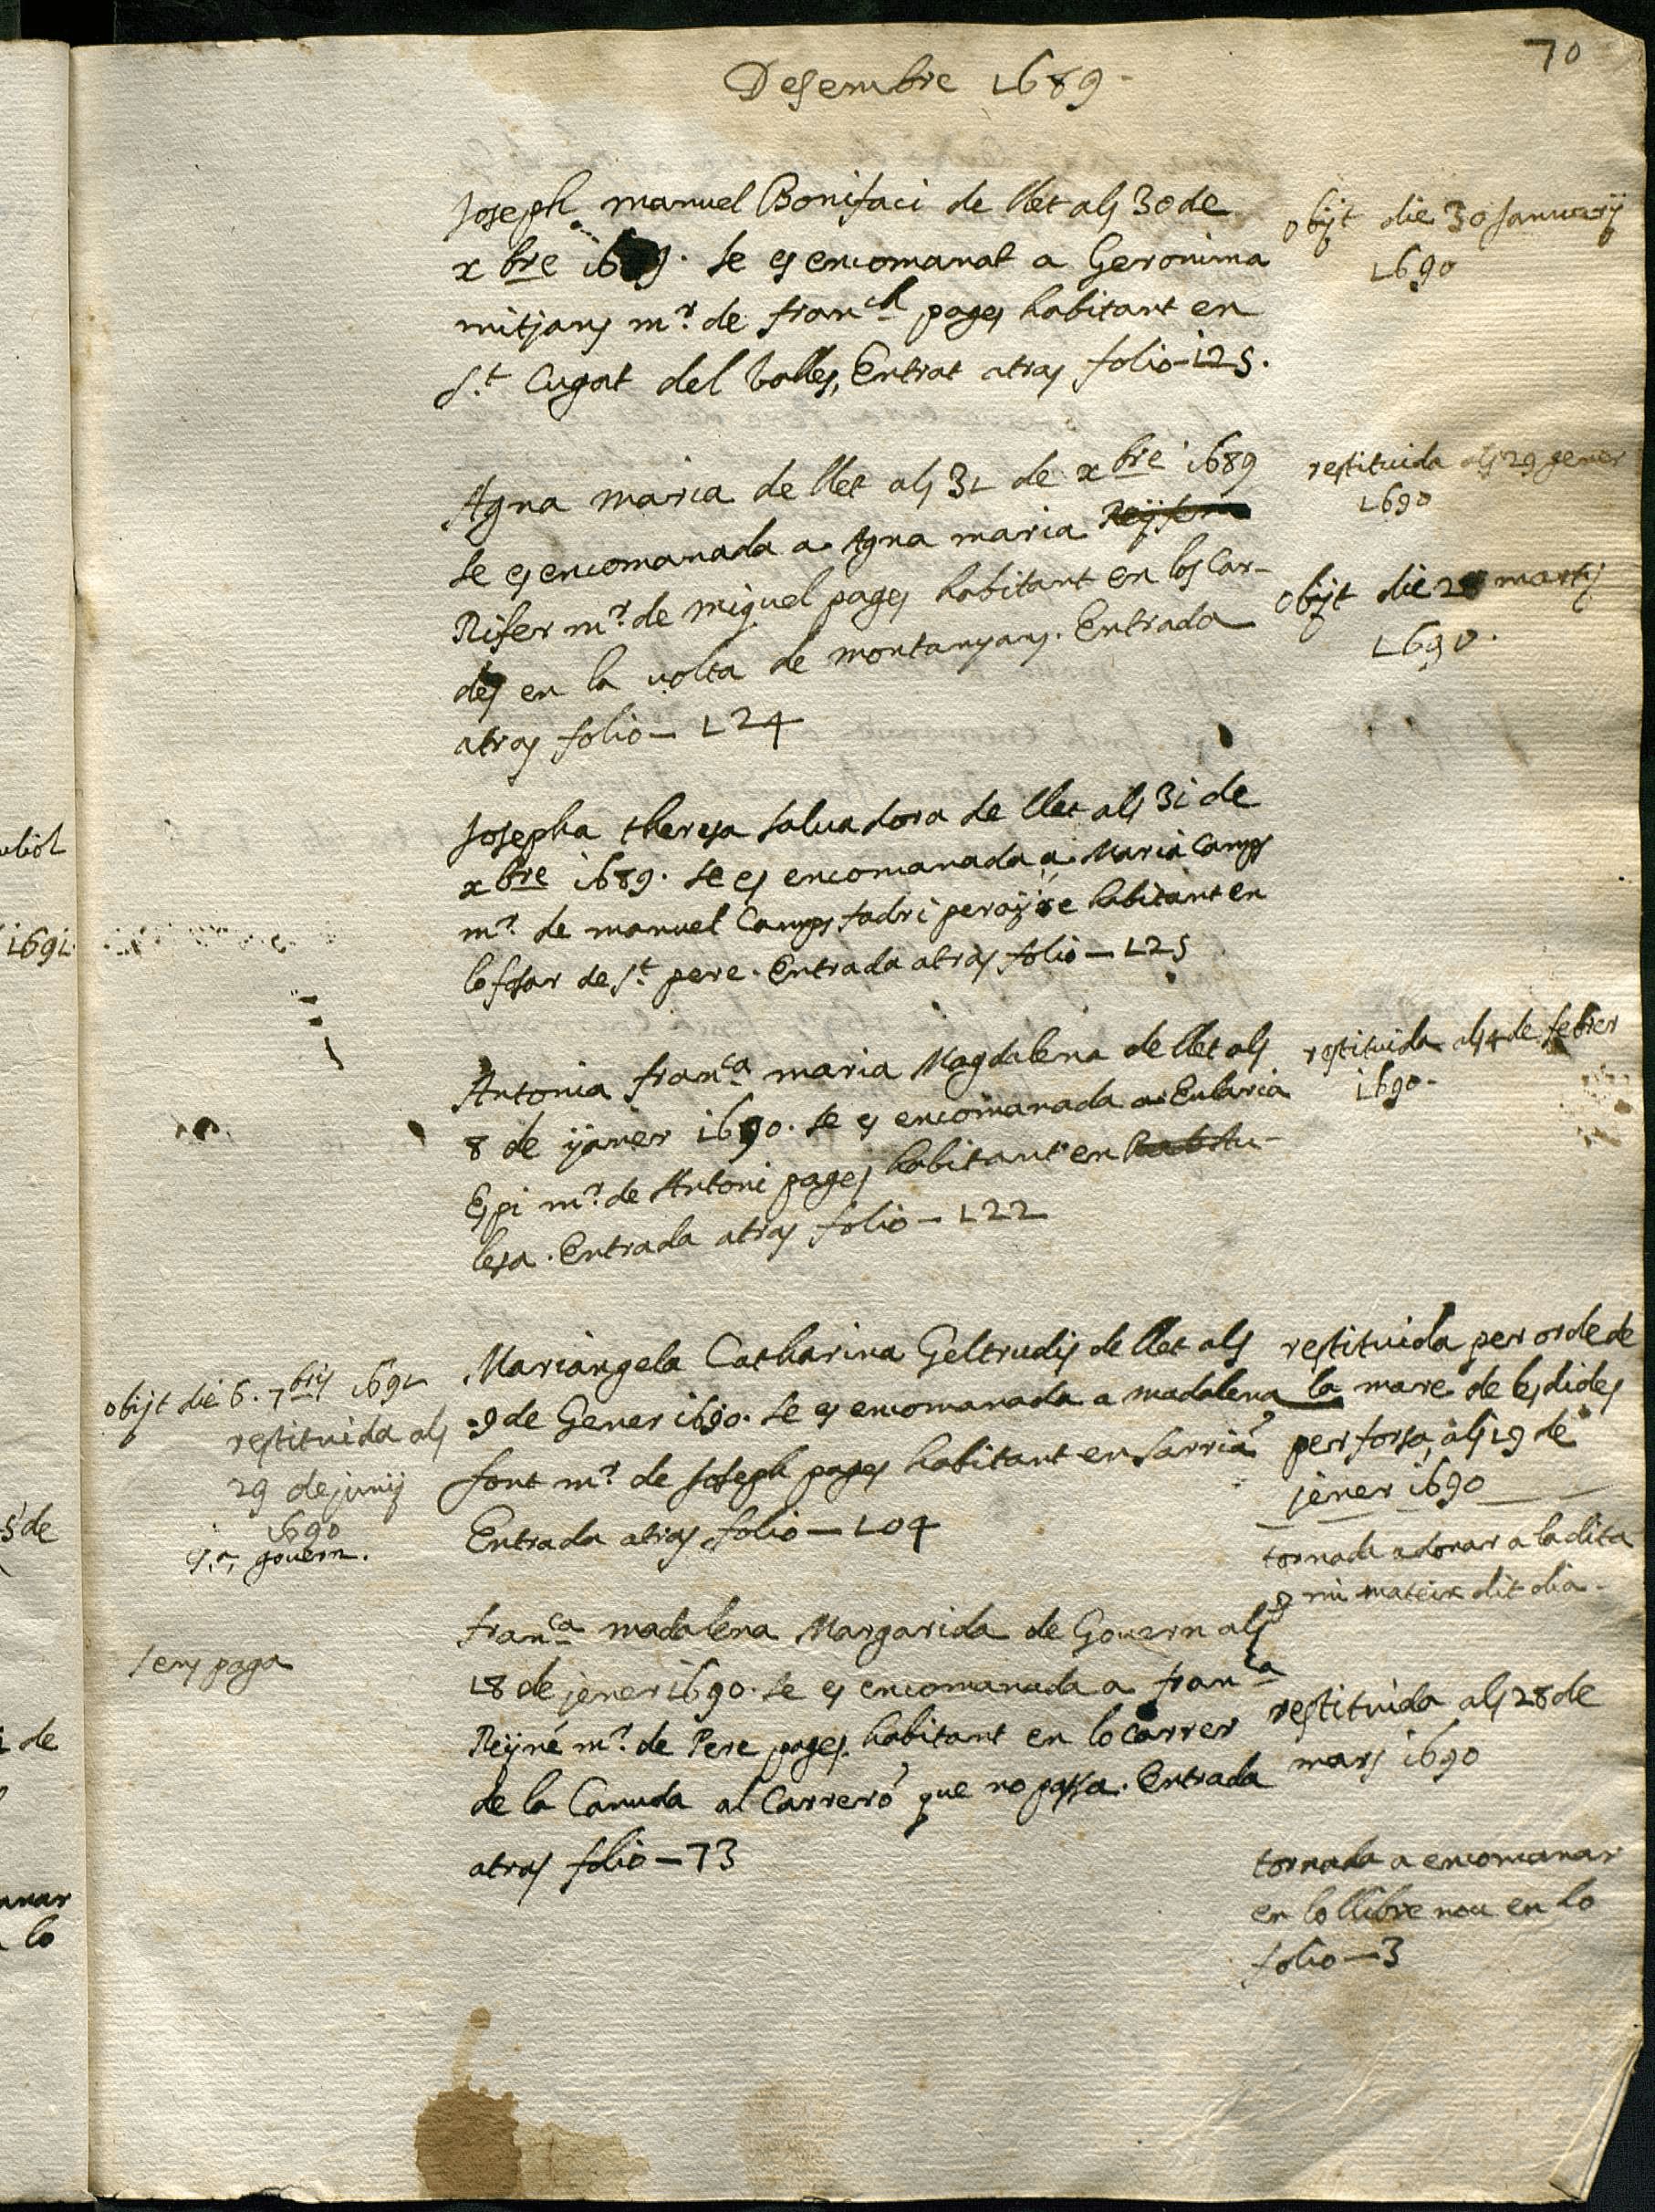 70
Desembre 1689
Joseph manuel Bonifaci de llet als 30 de
xbre 1689. se es encomanat a Geronima
mitjans mr. de franch pages habitant en
St. Cugat del Valles, Entrat atras folio - 125.
obijt die 30 Januarij
1690
Agna maria de llet als 31 de xbre 1689
se es encomanada a Agna maria
Rifer mr. de miquel pages habitant en los Car-
des en la volta de montanyans. Entrada
atras folio - 124
restituida als 29 gener
1690
obijt die martij
1690.
Josepha theresa salvadora de llet als 31 de
xbre 1689. se es encomanada a Maria Camps
mr. de manuel Camps fadri perayre habitant en
lo fosar de St. pere. Entrada atras folio - 125
Antonia franca maria Magdalena de llet als
8 de ijaner 1690. se es encomanada a Eularia
Espi mr. de Antoni pages habitant en
lesa. Entrada atras folio - 122
restituida als 4 de febrer
1690.
Mariangela Catharina Geltrudis de llet als
9 de Gener 1690. se es encomanada a madalena
font mr. de Joseph pages habitant en Sarrià
Entrada atras folio - 104
obijt die 6. 7bris 1691
restituida als
29 de junij
1690
govern.
restituida per orde de
la mare de les dides
per forsa als 19 de
jener 1690
tornada a donar a la dita
mi mateix dit dia.
franca madalena Margarida de Govern als
18 de jener 1690. se es encomanada a franca
Reyné mr. de Pere pages habitant en lo carrer
de la Canuda al Carreró que no passa. Entrada
atras folio - 73
sens paga
restituida als 28 de
mars 1690
tornada a encomanar
en lo llibre nou en lo
folio - 3
1691
5 de
de
anar
lo